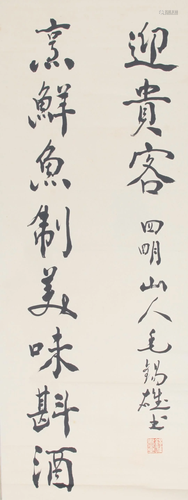 烹鮮魚制美味斟酒
迎貴客 四明山人毛錫雄书